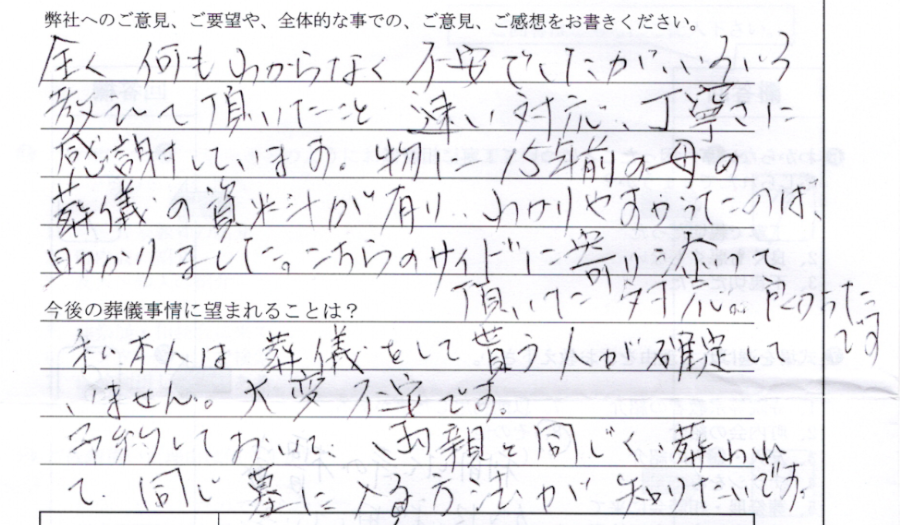 弊社へのご意見、ご要望や、全体的な事での、ご意見、ご感想をお書きください。
全く 何もわからなく 不安でしたが、いろいろ
教えて頂いたこと 速い対応、丁寧さに
感謝しています。物に 15年前の母の
葬儀の資料が有り、わかりやすかったのは、
助かりました。こちらのサイドに寄り添って
頂いた 対応。良かった
です
今後の葬儀事情に望まれることは?
私本人は葬儀をして貰う人が確定して
いません。大変不安です。
予約しておいて、両親と同じく葬われ
て、同じ墓に入る方法が知りたいです。